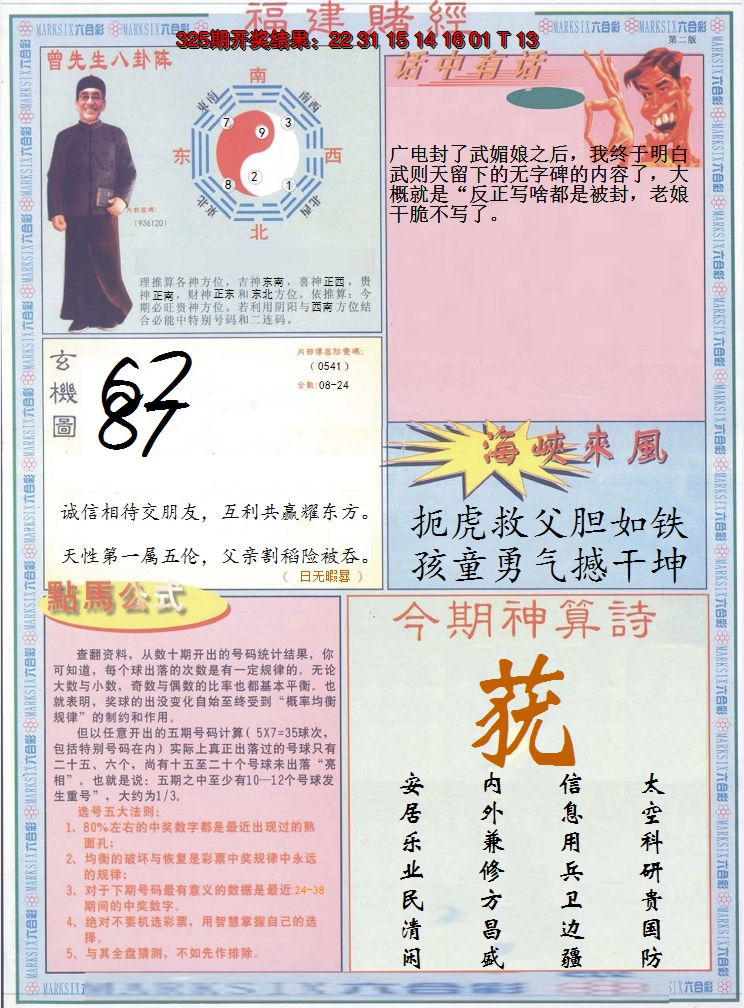 福建賭經
325期开奖结果：22 31 15 14 16 01 T 13
第二版
MARKSIX六合彩
曾先生八卦阵
南
東南
南西
7
9
3
东
西
8
2
1
東北
北西
北
內部密碼：
（936120）
理推算各神方位，吉神东南，喜神正西，贵
神正南，财神正东和东北方位。依推算：今
期必旺贵神方位。若利用阴阳与西南方位结
合必能中特别号码和二连码。
话中有话
广电封了武媚娘之后，我终于明白
武则天留下的无字碑的内容了，大
概就是“反正写啥都是被封，老娘
干脆不写了。
玄機圖
62
87
內部傳密防變碼：
（0541）
合数：08-24
诚信相待交朋友，互利共赢耀东方。
天性第一属五伦，父亲割稻险被吞。
（ 日无暇晷 ）
海峽來風
扼虎救父胆如铁
孩童勇气撼干坤
點馬公式
查翻资料，从数十期开出的号码统计结果，你
可知道，每个球出落的次数是有一定规律的。无论
大数与小数，奇数与偶数的比率也都基本平衡。也
就表明，奖球的出没变化自始至终受到“概率均衡
规律”的制约和作用。
但以任意开出的五期号码计算（5X7=35球次，
包括特别号码在内）实际上真正出落过的号球只有
二十五、六个，尚有十五至二十个号球未出落“亮
相”。也就是说：五期之中至少有10—12个号球发
生重号”，大约为1/3。
选号五大法则：
1、80%左右的中奖数字都是最近出现过的熟
面孔；
2、均衡的破坏与恢复是彩票中奖规律中永远
的规律；
3、对于下期号码最有意义的数据是最近24-38
期间的中奖数字。
4、绝对不要机选彩票，用智慧掌握自己的选
择。
5、与其全盘猜测，不如先作排除。
今期神算詩
安居乐业民清闲
内外兼修方昌盛
信息用兵卫边疆
太空科研贵国防